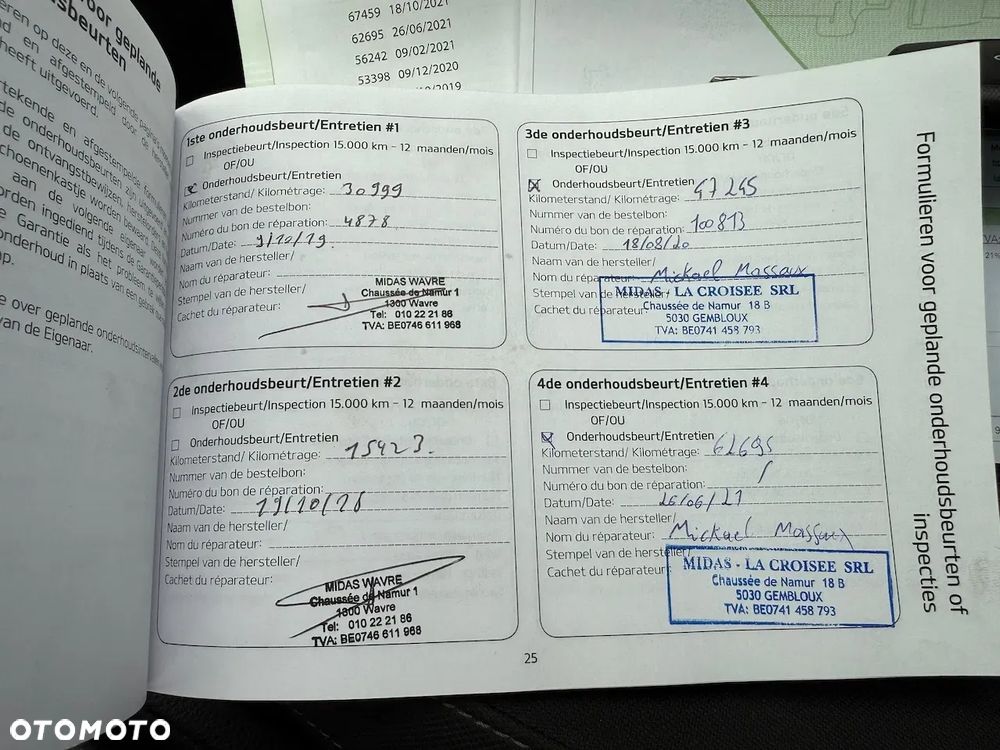 67459 18/10/2021
62695 26/06/2021
56242 09/02/2021
53398 09/12/2020
/2019
voor geplande
sbeurten
eren op deze en de volgende
d en afgestempeld door de
heeft uitgevoerd.
rtekende en afgestempelde
de onderhoudsbeurten zijn uitgevoerd
de ontvangstbewijzen,
choenenkastje worden bewaard
aan de volgende eigenaar
orden ingediend tijdens de
e Garantie als het probleem te
onderhoud in plaats van een gebrek
op.
e over geplande onderhoudsintervallen
van de Eigenaar.
1ste onderhoudsbeurt/Entretien #1
Inspectiebeurt/Inspection 15.000 km - 12 maanden/mois
OF/OU
Onderhoudsbeurt/Entretien
Kilometerstand/ Kilométrage: 30999
Nummer van de bestelbon:
Numéro du bon de réparation: 4878
Datum/Date: 9/10/19.
Naam van de hersteller/
Nom du réparateur:
Stempel van de hersteller/
Cachet du réparateur:
MIDAS WAVRE
Chaussée de Namur 1
1300 Wavre
Tel: 010 22 21 86
TVA: BE0746 611 968
2de onderhoudsbeurt/Entretien #2
Inspectiebeurt/Inspection 15.000 km - 12 maanden/mois
OF/OU
Onderhoudsbeurt/Entretien
Kilometerstand/ Kilométrage: 15423.
Nummer van de bestelbon:
Numéro du bon de réparation:
Datum/Date: 19/10/18
Naam van de hersteller/
Nom du réparateur:
Stempel van de hersteller/
Cachet du réparateur:
MIDAS WAVRE
Chaussée de Namur 1
1300 Wavre
Tel: 010 22 21 86
TVA: BE0746 611 968
3de onderhoudsbeurt/Entretien #3
Inspectiebeurt/Inspection 15.000 km - 12 maanden/mois
OF/OU
Onderhoudsbeurt/Entretien
Kilometerstand/ Kilométrage: 47245
Nummer van de bestelbon:
Numéro du bon de réparation: 100813
Datum/Date: 18/08/20
Naam van de hersteller/
Nom du réparateur: Mickael Massaux
Stempel van de hersteller/
Cachet du réparateur:
MIDAS - LA CROISEE SRL
Chaussée de Namur 18 B
5030 GEMBLOUX
TVA: BE0741 458 793
4de onderhoudsbeurt/Entretien #4
Inspectiebeurt/Inspection 15.000 km - 12 maanden/mois
OF/OU
Onderhoudsbeurt/Entretien
Kilometerstand/ Kilométrage: 62695
Nummer van de bestelbon:
Numéro du bon de réparation: /
Datum/Date: 26/06/21
Naam van de hersteller/
Nom du réparateur: Mickael Massaux
Stempel van de hersteller/
Cachet du réparateur:
MIDAS - LA CROISEE SRL
Chaussée de Namur 18 B
5030 GEMBLOUX
TVA: BE0741 458 793
Formulieren voor geplande onderhoudsbeurten of
inspecties
25
21%
OTOMOTO